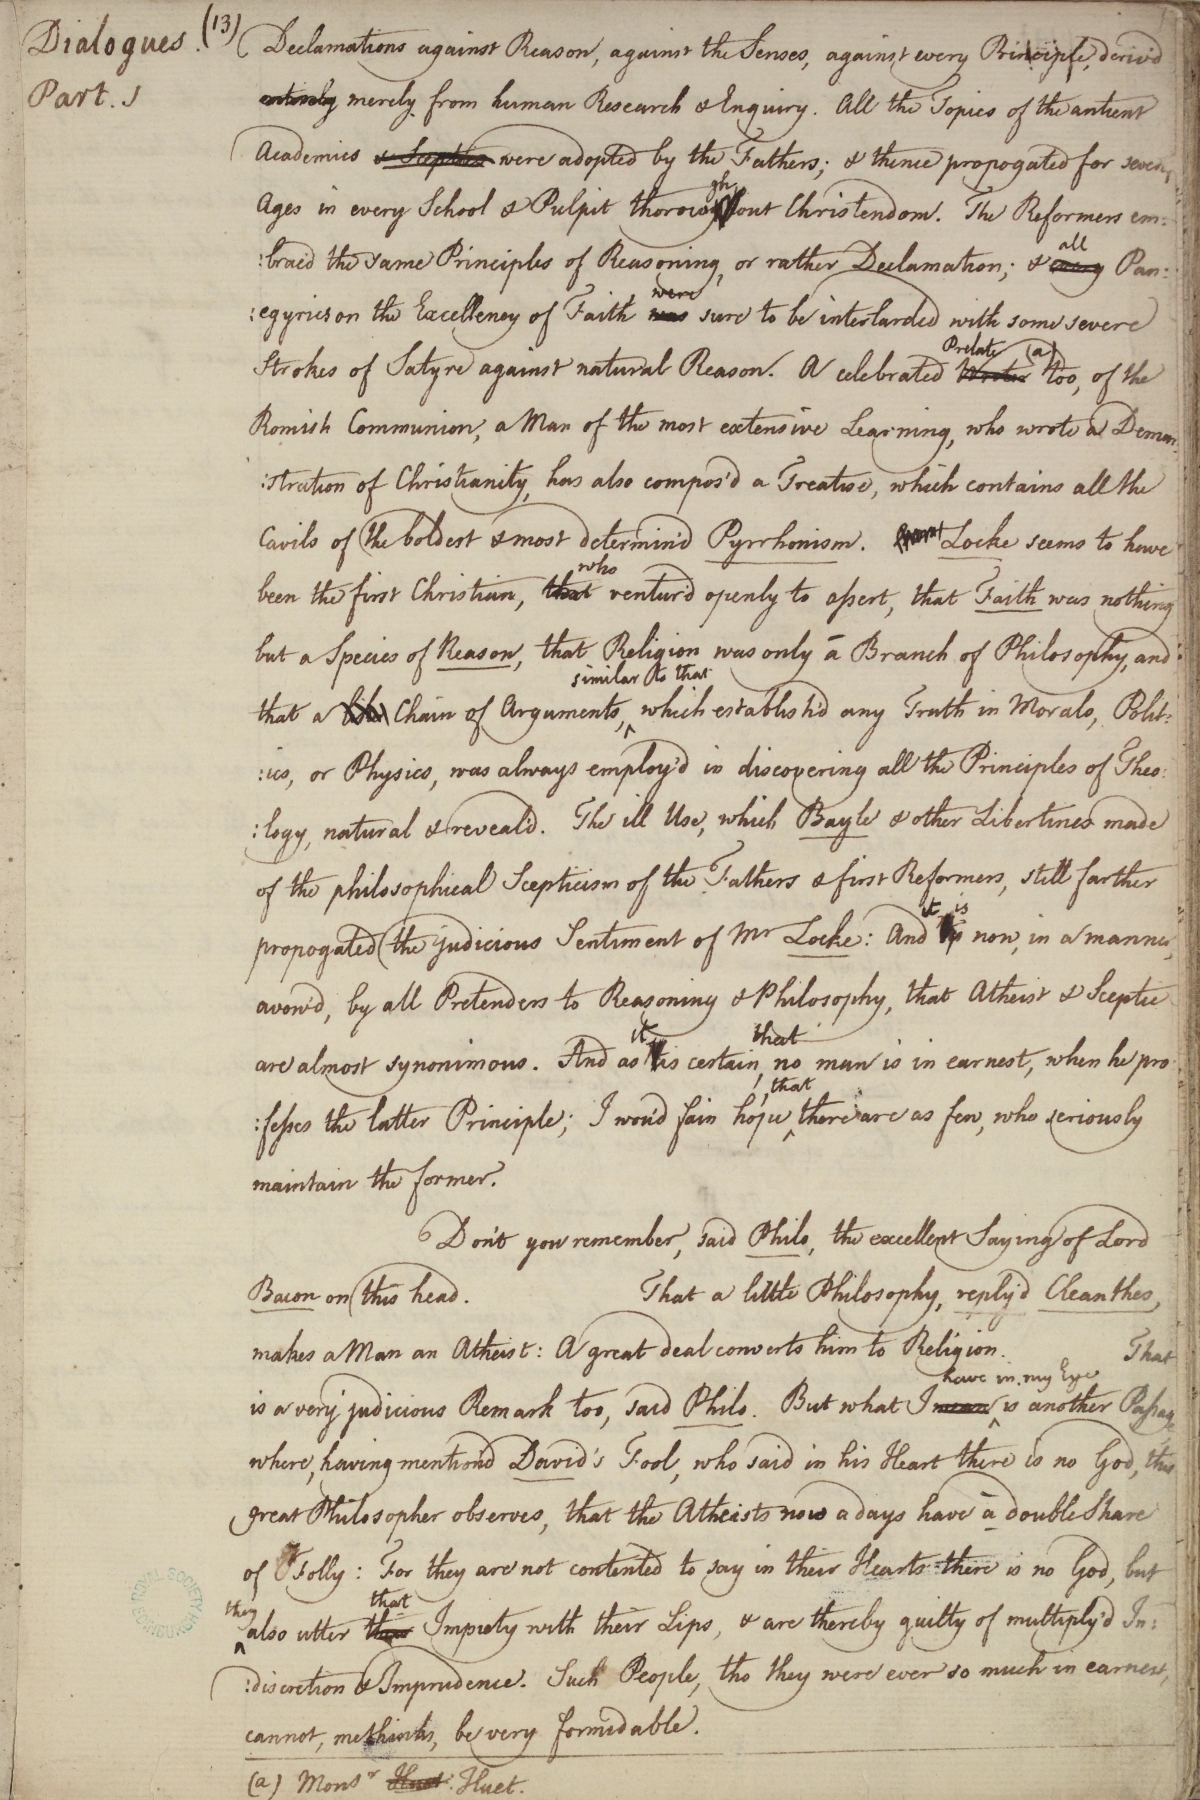 Dialogues. (13)
Part. 1
Declamations against Reason, against the Senses, against every Principle, deriv'd
entirely merely from human Research & Enquiry. All the Topics of the antient
Academics & Sceptics were adopted by the Fathers; & thence propogated for several
Ages in every School & Pulpit thoroughout Christendom. The Reformers em:
:brac'd the same Principles of Reasoning, or rather Declamation; & every all Pan:
:egyrics on the Excellency of Faith was were sure to be interlarded with some severe
Strokes of Satyre against natural Reason. A celebrated Writer Prelate (a) too, of the
Romish Communion, a Man of the most extensive Learning, who wrote a Demon:
:stration of Christianity, has also compos'd a Treatise, which contains all the
Cavils of the boldest & most determin'd Pyrrhonism. Locke seems to have
been the first Christian, that who ventur'd openly to assert, that Faith was nothing
but a Species of Reason, that Religion was only a Branch of Philosophy, and
that a like Chain of Arguments, similar to that which establish'd any Truth in Morals, Polit:
:ics, or Physics, was always employ'd in discovering all the Principles of Theo:
:logy, natural & reveal'd. The ill Use, which Bayle & other Libertines made
of the philosophical Scepticism of the Fathers & first Reformers, still farther
propogated the judicious Sentiment of Mr Locke: And it is now, in a manner,
avow'd, by all Pretenders to Reasoning & Philosophy, that Atheist & Sceptic
are almost synonimous. And as it is certain, that no man is in earnest, when he pro
:fesses the latter Principle; I wou'd fain hope, that there are as few, who seriously
maintain the former.
Don't you remember, said Philo, the excellent Saying of Lord
Bacon on this head. That a little Philosophy, reply'd Cleanthes,
makes a Man an Atheist: A great deal converts him to Religion. That
is a very judicious Remark too, said Philo. But what I mean have in my Eye is another Passage
where, having mention'd David's Fool, who said in his Heart there is no God, this
great Philosopher observes, that the Atheists now a days have a double Share
of Folly: For they are not contented to say in their Hearts there is no God, but
they also utter their that Impiety with their Lips, & are thereby guilty of multiply'd In:
:discretion & Imprudence. Such People, tho they were ever so much in earnest,
cannot, methinks, be very formidable.
(a) Monsr Huet. Huet.